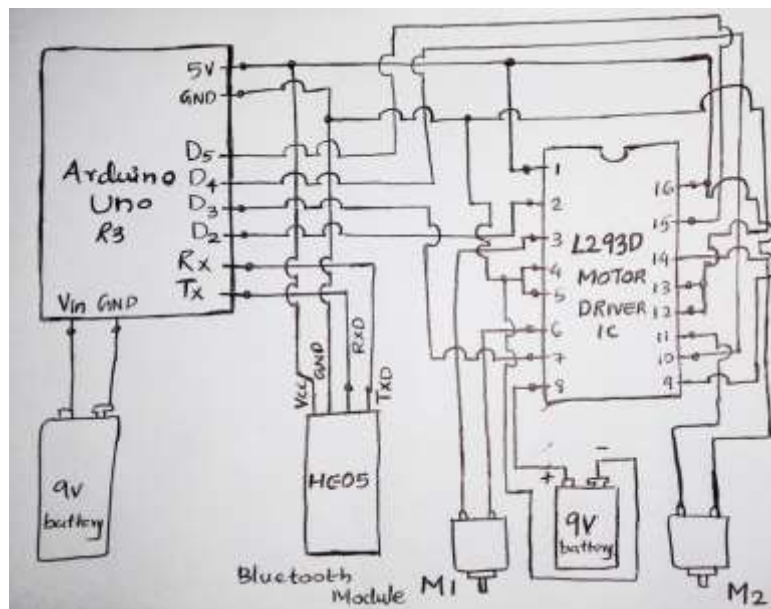 5V
GND
D5
D4
D3
D2
Rx
Tx
Arduino
Uno
R3
Vin GND
9V
battery
Vcc
GND
RXD
TXD
HC05
Bluetooth
Module
1
2
3
4
5
6
7
8
L293D
MOTOR
DRIVER
IC
16
15
14
13
12
11
10
9
M1
+
-
9V
battery
M2